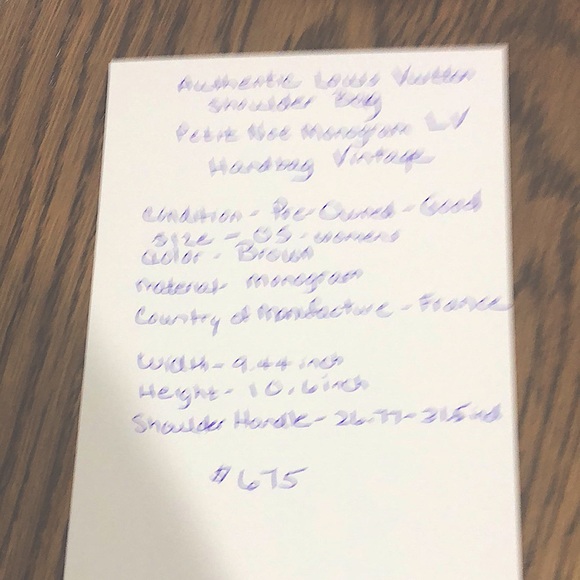 Authentic Louis Vuitton
Shoulder Bag
Petite Noe Monogram LV
Handbag Vintage
Condition - Pre-Owned - Good
Size - OS - womens
Color - Brown
Material - Monogram
Country of Manufacture - France
Width - 9.44 inch
Height - 10.6 inch
Shoulder Handle - 26.77 - 31.5 inch
$675